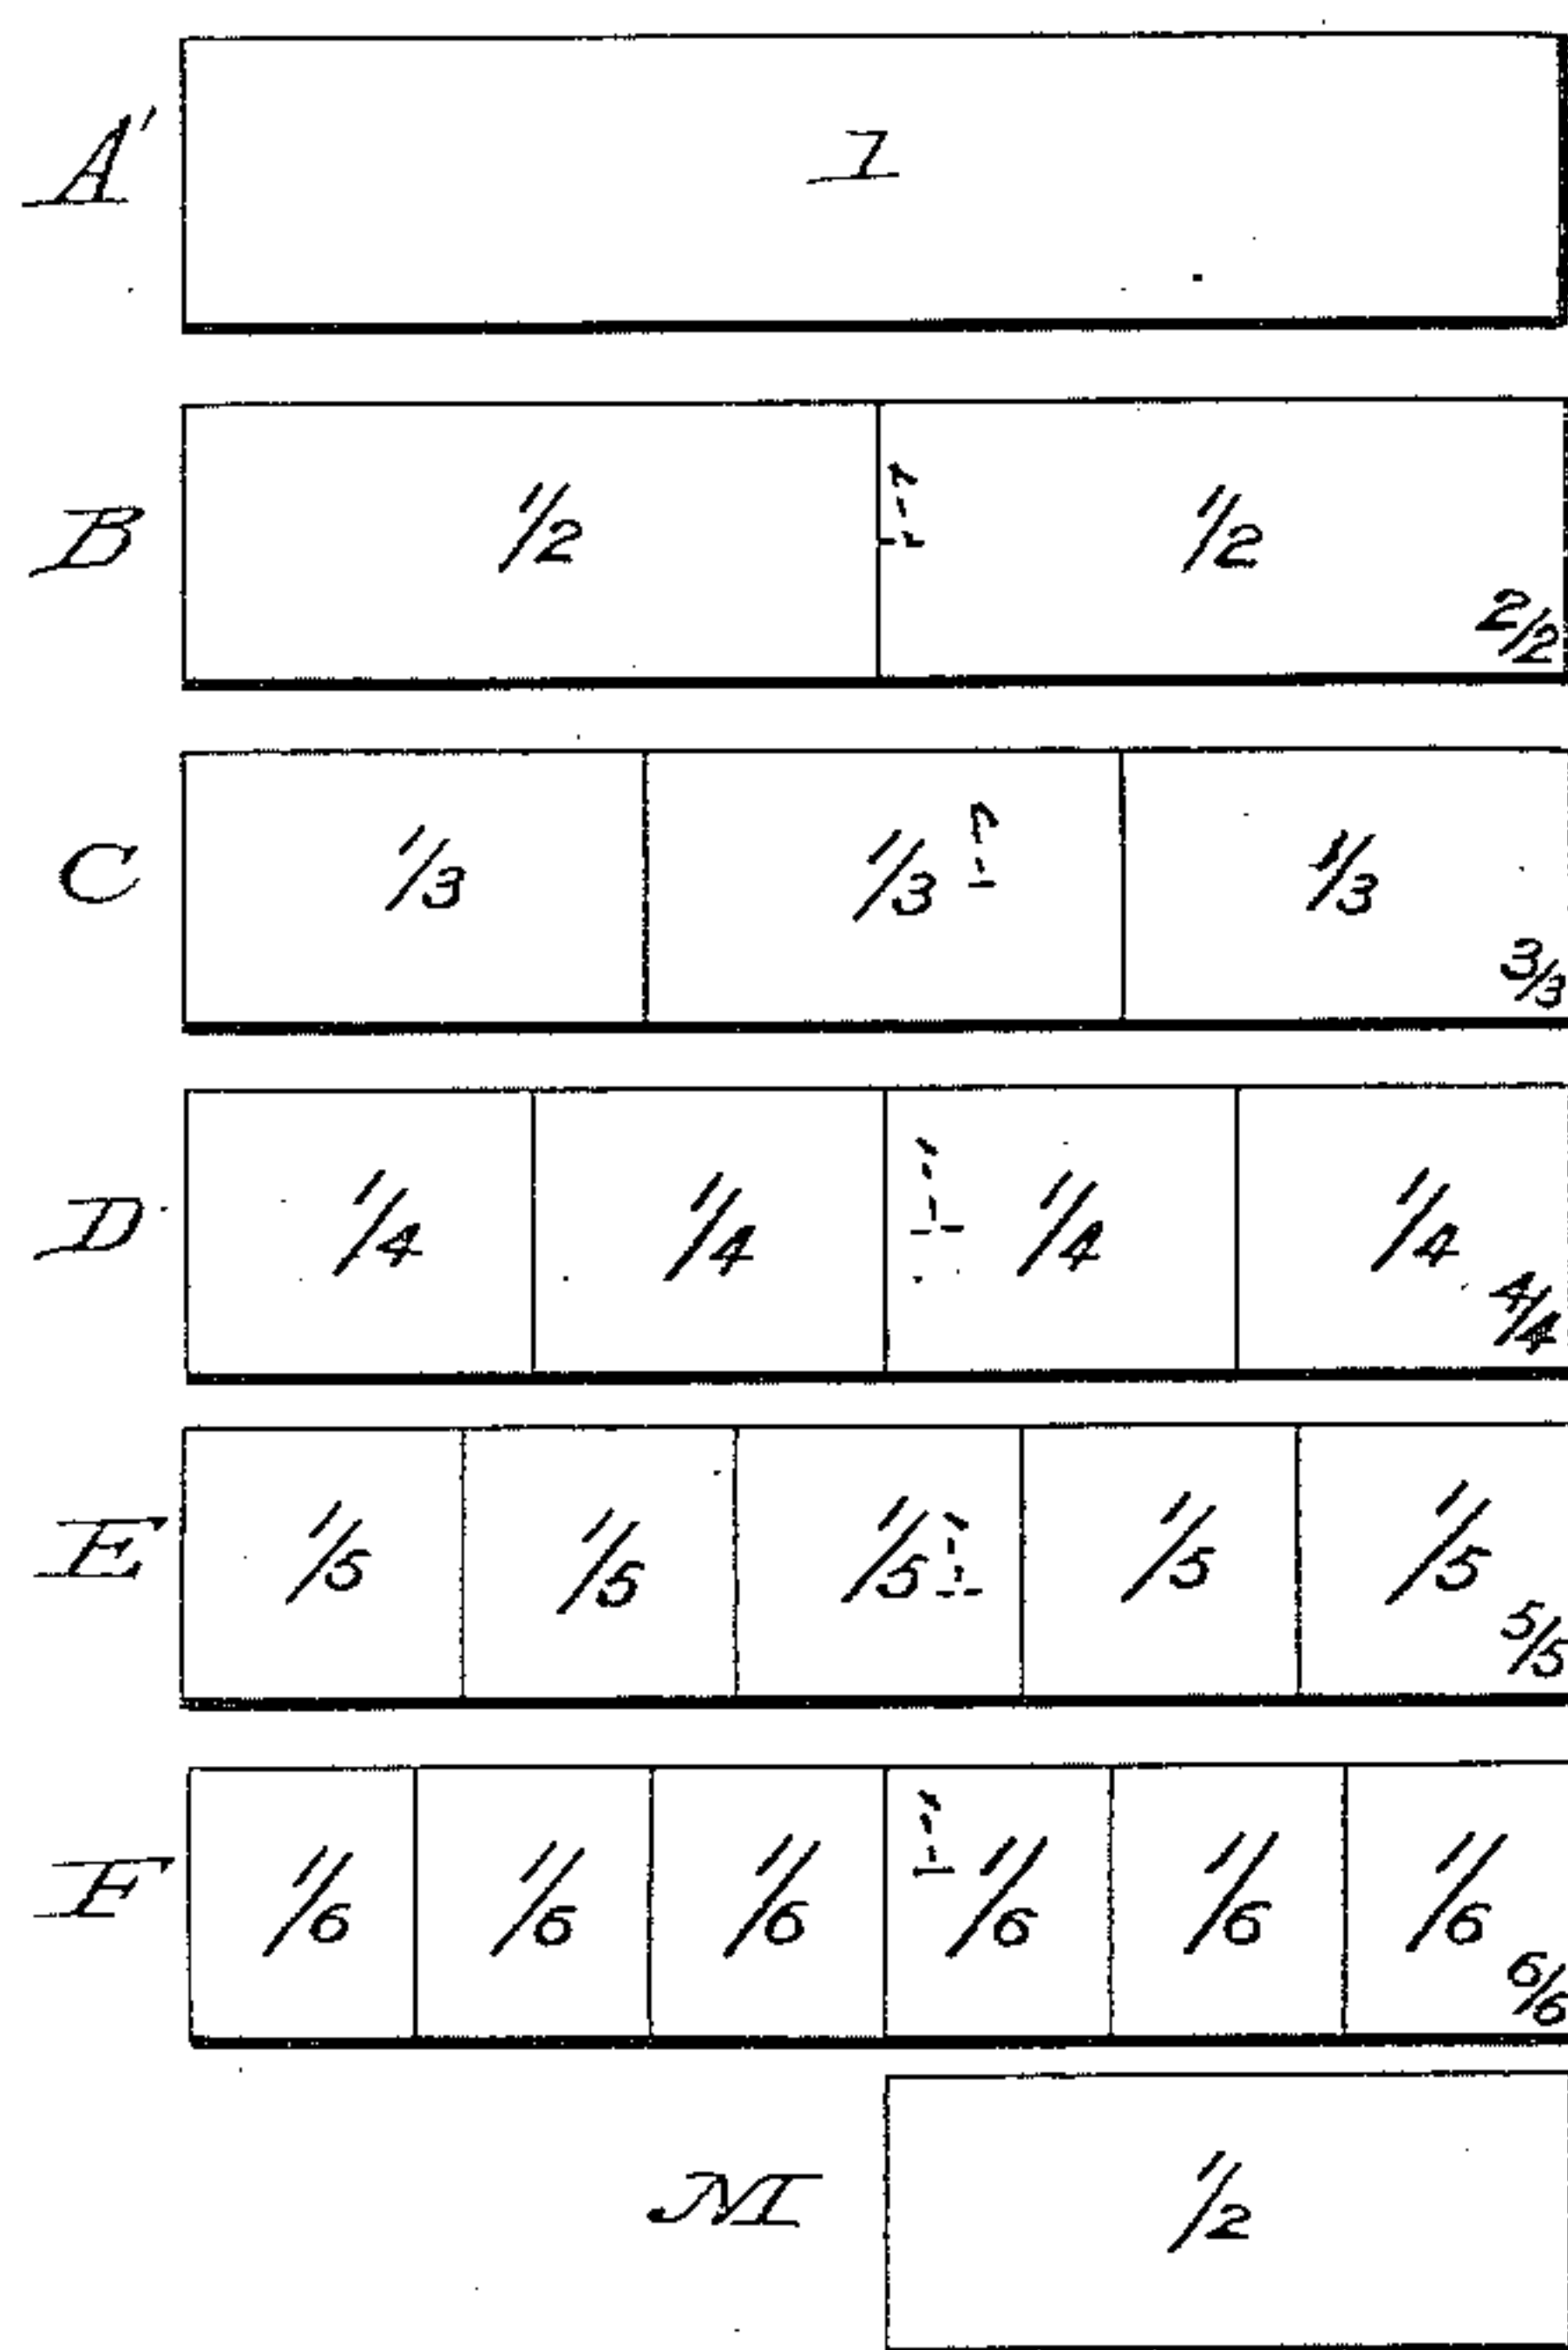 A' 1
B 1/2 1/2 2/2
C 1/3 1/3 1/3 3/3
D 1/4 1/4 1/4 1/4 4/4
E 1/5 1/5 1/5 1/5 1/5 5/5
F 1/6 1/6 1/6 1/6 1/6 1/6 6/6
M 1/2